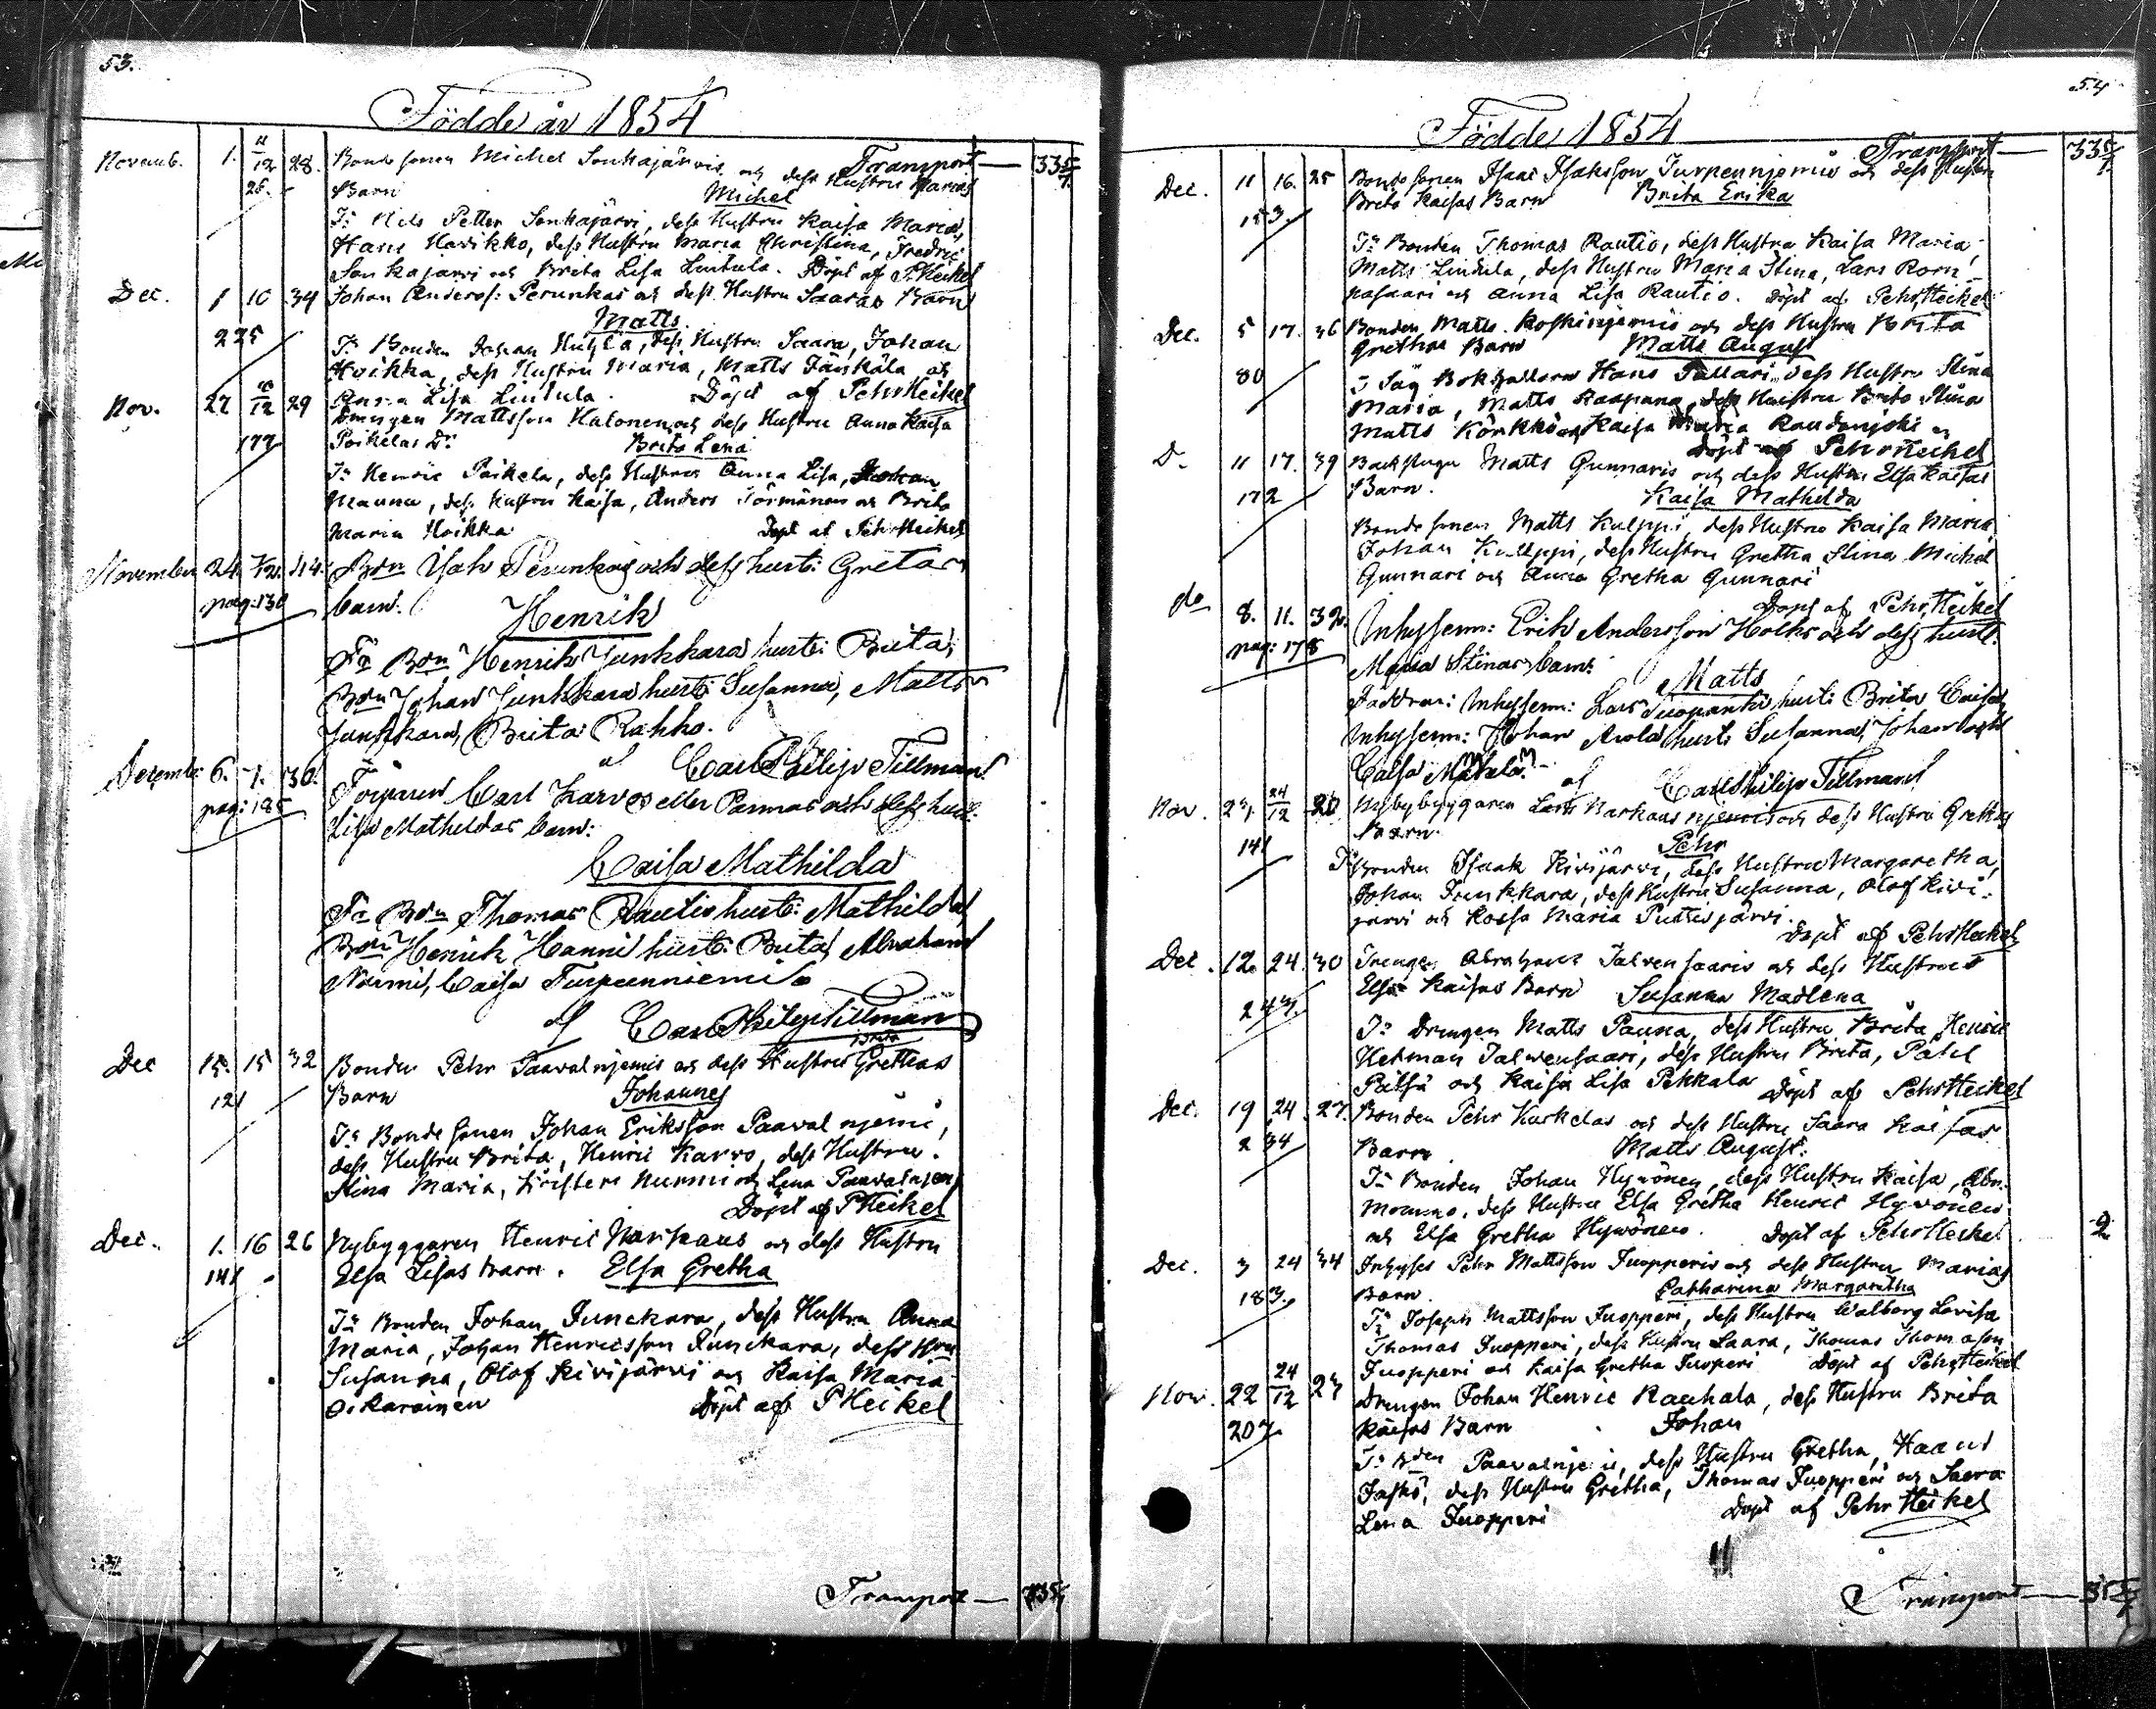 53.
Födde år 1854
Transport — 335/7
Novemb. 1. 11/12 28. Bondesonen Michel Sonkajärvis och dess Hustru Marias
26. Barn Michel
Fr Nils Petter Sonkajärvi, dess Hustru Kaisa Maria,
Hans Havikko, dess Hustru Maria Christina, Fredric
Sonkajärvi och Brita Lisa Lintula. Döpt af PHeikel
Dec. 1 10 34 Johan Anderss: Perunkas och dess Hustru Saaras Barn
Matts
225 Fr Bonden Johan , dess Hustru Saara, Johan
Hoikka, dess Hustru Maria, Matts och
Anna Lisa Lintula. Döpt af Pehr Heikel
Nov. 27 /12 29 Drengen Mattsson Halonen och dess Hustru Anna Kaisa
177 Poikelas Dr Brita Lena
Fr Henric Poikela, dess Hustru Anna Lisa, Johan
Mauna, dess Hustru Kaisa, Anders Törmänen och Brita
Maria Hoikka Döpt af Pehr Heikel
November 24. /12. 44. Bdn Isak Perunkas och dess hust: Gretas
pag: 130 barn: Henrik
Fr Bdn Henrik Junkkara hust: Brita,
Bdn Johan Junkkara hust: Susanna, Matts
Junkkara, Brita Rahko.
af Carl Philip Tillman
Decembr 6. 7. 36. Torparen Carl Karvos eller Pannas och dess hust:
pag: 185 Lisa Mathildas barn:
Caisa Mathilda
Fr Bdn Thomas Rautio hust: Mathilda,
Bdn Henrik Hanni hust: Brita, Abraham
Niemi, Caisa Turpeenniemi
af Carl Philip Tillman
Brita
Dec 15. 15 32 Bonden Pehr Paavalnjemis och dess Hustru Grethas
121 Barn Johannes
Fr Bondesonen Johan Eriksson Paavalnjemi,
dess Hustru Brita, Henric Karvo, dess Hustru
Stina Maria, Kristern Nurmi och Lena Paavalnjemi
Döpt af PHeikel
Dec. 1. 16 26 Nybyggaren Henric Narkaus och dess Hustru
141 Elsa Lisas barn. Elsa Gretha
Fr Bonden Johan Junckara, dess Hustru Anna
Maria, Johan Henricsson Junckara, dess Hru
Susanna, Olof Kivijärvi och Kaisa Maria
Oikarainen Döpt af PHeikel
Transport — 335/7
54
Födde 1854
Transport — 335/7
Dec. 11 16. 25 Bondesonen Isaac Isaksson Turpennjemis och dess Hustru
Brita Kaisas Barn Brita Erika
153.
Fr Bonden Thomas Rautio, dess Hustru Kaisa Maria,
Matts Lindula, dess Hustru Maria Stina, Lars Korn-
pasaari och Anna Lisa Rautio. Döpt af Pehr Heikel
Dec. 5 17. 36 Bonden Matts Koskinjemis och dess Hustru Brita
Grethas Barn Matts August
80 Fr Såg Bokhållaren Hans Pallari, dess Hustru Stina
Maria, Matts Raapana, dess Hustru Brita Stina
Matts Körkkö och Kaisa Maria Raudanjoki
Döpt af Pehr Heikel
D. 11 17. 39 Backstugu Matts Gunnaris och dess Hustru Elsa Kaisas
172 Barn. Kaisa Mathilda
Bondesonen Matts Kulppi, dess Hustru Kaisa Maria,
Johan Kulppi, dess Hustru Gretha Stina Michel
Gunnari och Anna Gretha Gunnari
Döpt af Pehr Heikel
do 8. 11. 32. Inhysenn: Erik Andersson Holks och dess hust:
pag: 178 Maria Stinas barn: Matts
Faddrar: Inhysenn: Lars Suopanki hust: Brita Caisa,
Inhysenn: Johan Arola hust: Susanna, Johan och
Caisa Matala. af Carl Philip Tillman
Nov. 24/12 20 Nybybyggaren Lars Narkausnjemis och dess Hustru Grethas
141 Barn. Pehr
Fr Bonden Isaak Kivijärvi, dess Hustru Margaretha,
Johan Junkkara, dess Hustru Susanna, Olof Kivi-
järvi och Kaisa Maria Puttisjärvi.
Döpt af Pehr Heikel
Dec. 12. 24. 30 Drengen Abraham Jalvensaaris och dess Hustrus
Elsa Kaisas Barn Susanna Madlena
247. Fr Drengen Matts Pauna, dess Hustru Brita, Henric
Herman Jalvensaari, dess Hustru Brita, Påhl
Paitsä och Kaisa Lisa Pekkala Döpt af Pehr Heikel
Dec. 19 24. 27. Bonden Pehr Karkelas och dess Hustru Saara Kaisas
234 Barn Matts August.
Fr Bonden Johan Hyvönen, dess Hustru Kaisa, Abr.
Mommo, dess Hustru Elsa Gretha Henric Hyvönen
och Elsa Gretha Hyvönen. Döpt af Pehr Heikel
Dec. 3 24 34 Inhyses Pehr Mattsson Juopperis och dess Hustru Marias
183. Barn. Catharina Margaretha
Fr Joseph Mattsson Juopperi, dess Hustru Walborg Lovisa
Thomas Juopperi, dess Hustru Saara, Thomas Thomason
Juopperi och Kaisa Gretha Juoperi Döpt af Pehr Heikel
Nov. 22 24/12 27 Drengen Johan Henric Rauhala, dess Hustru Brita
207. Kaisas Barn Johan
Fr Bden Paavalnje i, dess Hustru Gretha,
Jaskö, dess Hustru Gretha, Thomas Juopperi och Saara
Lena Juopperi Döpt af Pehr Heikel
Transport —